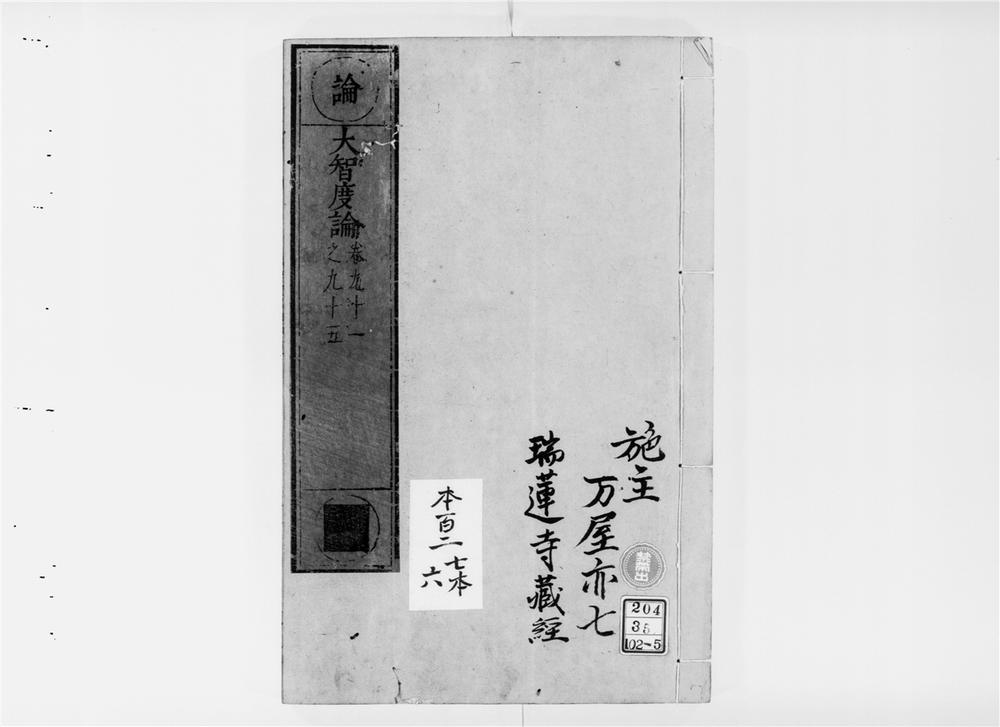 施主
万屋亦七
瑞蓮寺藏經
禁出
204
35
102-5
本百二七本
六
論
大智度論
卷九十一
之九十五